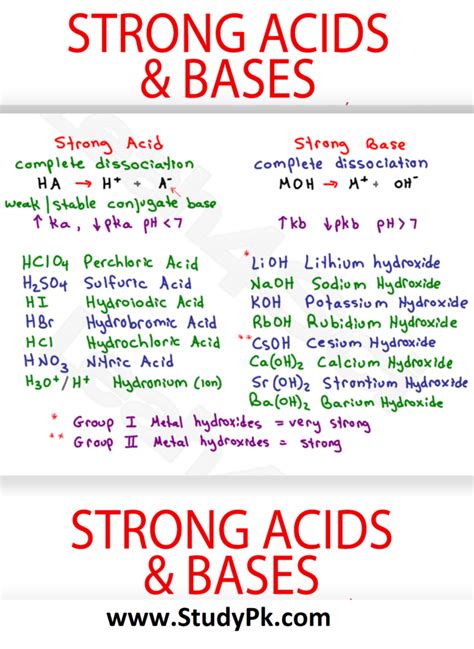 STRONG ACIDS
& BASES
Strong Acid
complete dissociation
HA → H⁺ + A⁻
weak/stable conjugate base
↑ka, ↓pka pH<7
HClO₄ Perchloric Acid
H₂SO₄ Sulfuric Acid
HI Hydroiodic Acid
HBr Hydrobromic Acid
HCl Hydrochloric Acid
HNO₃ Nitric Acid
H₃O⁺/H⁺ Hydronium (ion)
Strong Base
complete dissociation
MOH → M⁺ + OH⁻
↑kb ↓pkb pH>7
* LiOH Lithium hydroxide
NaOH Sodium Hydroxide
KOH Potassium Hydroxide
RbOH Rubidium Hydroxide
** CsOH Cesium Hydroxide
Ca(OH)₂ Calcium Hydroxide
Sr(OH)₂ Strontium Hydroxide
Ba(OH)₂ Barium Hydroxide
* Group I Metal hydroxides = very strong
** Group II Metal hydroxides = strong
STRONG ACIDS
& BASES
www.StudyPk.com